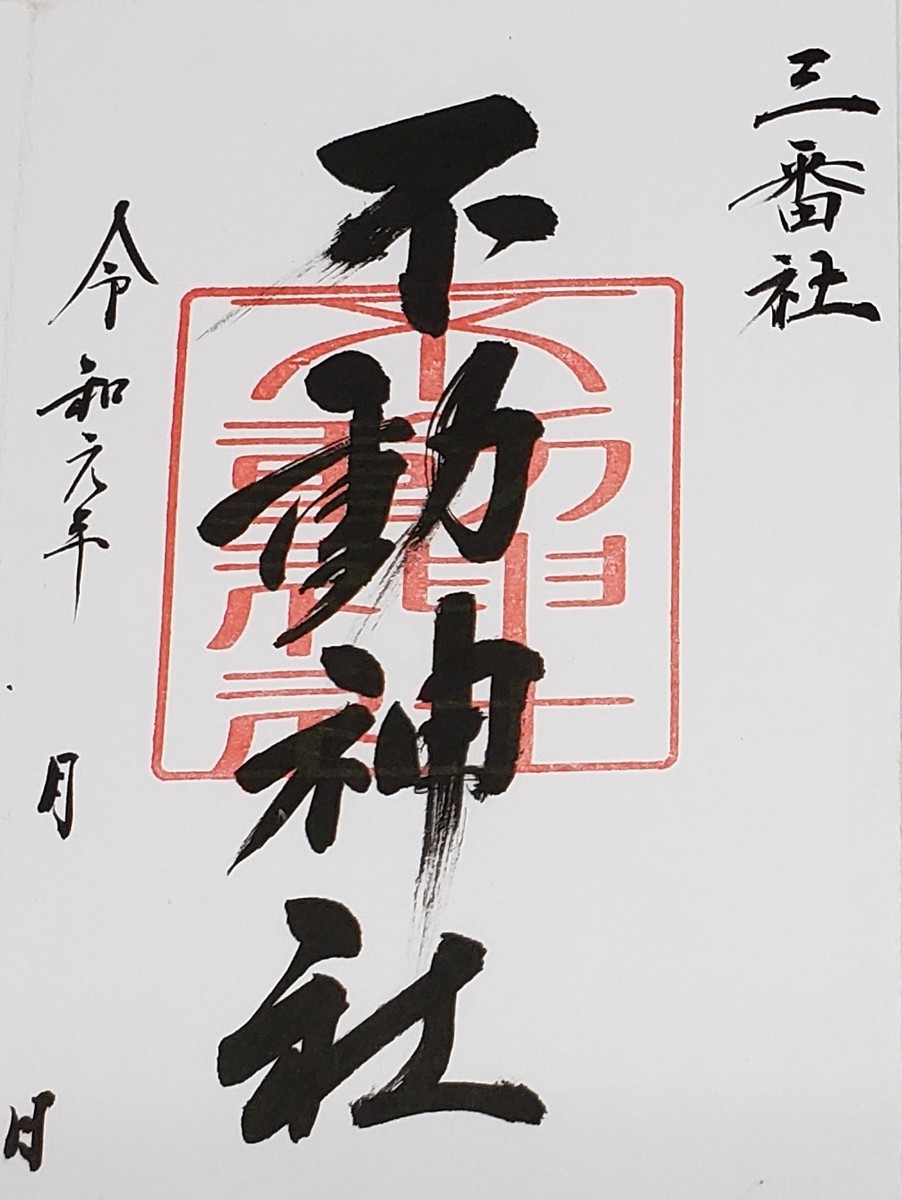 三番社
不動神社
不動神社
令和元年
月
日